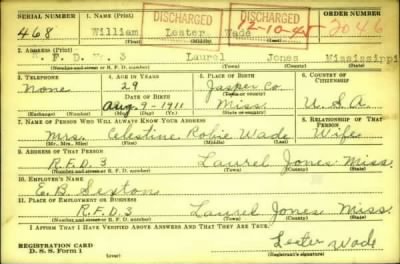 SERIAL NUMBER 1. NAME (Print) ORDER NUMBER
DISCHARGED DISCHARGED
468 William Lester Wade 12-10-45 2046
(First) (Middle) (Last)
2. ADDRESS (Print)
R. F. D. # 3 Laurel Jones Mississippi
(Number and street or R. F. D. number) (Town) (County) (State)
3. TELEPHONE 4. AGE IN YEARS 5. PLACE OF BIRTH 6. COUNTRY OF CITIZENSHIP
None 29 Jasper Co.
DATE OF BIRTH (Town or county)
Aug. 9-1911 Miss. U.S.A
(Exchange) (Number) (Mo.) (Day) (Yr.) (State or country)
7. NAME OF PERSON WHO WILL ALWAYS KNOW YOUR ADDRESS 8. RELATIONSHIP OF THAT PERSON
Mrs. Celestine Robie Wade Wife
(Mr., Mrs., Miss) (First) (Middle) (Last)
9. ADDRESS OF THAT PERSON
R.F.D. 3 Laurel Jones Miss.
(Number and street or R. F. D. number) (Town) (County) (State)
10. EMPLOYER'S NAME
E. B. Sexton
11. PLACE OF EMPLOYMENT OR BUSINESS
R.F.D. 3 Laurel Jones Miss.
(Number and street or R. F. D. number) (Town) (County) (State)
I AFFIRM THAT I HAVE VERIFIED ABOVE ANSWERS AND THAT THEY ARE TRUE.
REGISTRATION CARD
D. S. S. Form 1 Lester Wade
(Registrant's signature)